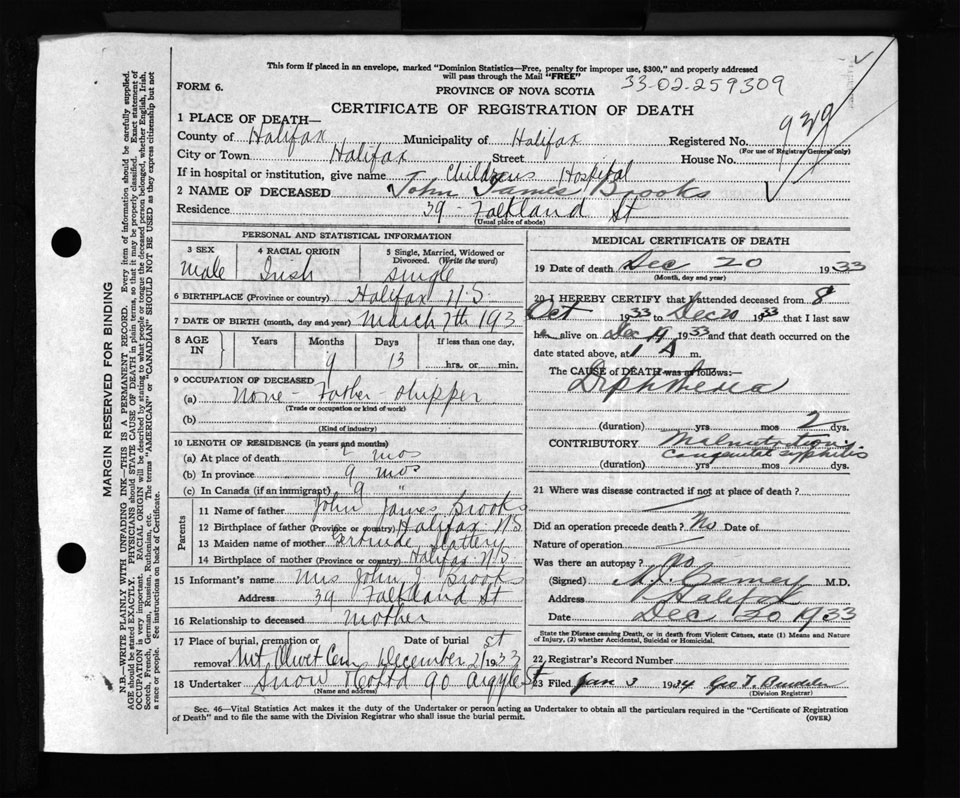 This form if placed in an envelope, marked "Dominion Statistics—Free, penalty for improper use, $300," and properly addressed
will pass through the Mail "FREE"
FORM 6.
PROVINCE OF NOVA SCOTIA
33-02-259309
CERTIFICATE OF REGISTRATION OF DEATH
1 PLACE OF DEATH—
County of Halifax Municipality of Halifax Registered No. 939
(For use of Registrar General only)
City or Town Halifax Street House No.
If in hospital or institution, give name Childrens Hospital
2 NAME OF DECEASED John James Brooks
Residence 39 Falkland St
(Usual place of abode)
PERSONAL AND STATISTICAL INFORMATION
3 SEX Male
4 RACIAL ORIGIN Irish
5 Single, Married, Widowed or Divorced. (Write the word) single
6 BIRTHPLACE (Province or country) Halifax N.S.
7 DATE OF BIRTH (month, day and year) March 7th 193
8 AGE IN Years Months 9 Days 13 If less than one day, hrs. or min.
9 OCCUPATION OF DECEASED
(a) None - Father Shipper
(Trade or occupation or kind of work)
(b)
(Kind of industry)
10 LENGTH OF RESIDENCE (in years and months)
(a) At place of death mos
(b) In province 9 mos
(c) In Canada (if an immigrant) 9 "
Parents
11 Name of father John James Brooks
12 Birthplace of father (Province or country) Halifax N.S
13 Maiden name of mother Gertrude Slattery
14 Birthplace of mother (Province or country) Halifax N.S.
15 Informant's name Mrs John J Brooks
Address 39 Falkland St
16 Relationship to deceased Mother
17 Place of burial, cremation or removal Mt. Olivet Cem Date of burial December 21st 1933
18 Undertaker Snow & Co Ltd 90 Argyle St
(Name and address)
MEDICAL CERTIFICATE OF DEATH
19 Date of death Dec 20 1933
(Month, day and year)
20 I HEREBY CERTIFY that I attended deceased from 8
Oct 1933 to Dec 20 1933 that I last saw
h alive on Dec 19 1933 and that death occurred on the
date stated above, at 1 A m.
The CAUSE of DEATH was as follows:—
Diphtheria
(duration) yrs. mos 2 dys.
CONTRIBUTORY Malnutrition
congenital syphilis
(duration) yrs mos dys.
21 Where was disease contracted if not at place of death?
Did an operation precede death? No Date of
Nature of operation
Was there an autopsy? no
(Signed) M.D.
Address Halifax
Date Dec 20 1933
State the Disease causing Death, or in death from Violent Causes, state (1) Means and Nature
of Injury, (2) whether Accidental, Suicidal or Homicidal.
22 Registrar's Record Number
23 Filed Jan 3 1934 Geo T.
(Division Registrar)
Sec. 46—Vital Statistics Act makes it the duty of the Undertaker or person acting as Undertaker to obtain all the particulars required in the "Certificate of Registration
of Death" and to file the same with the Division Registrar who shall issue the burial permit.
(OVER)
MARGIN RESERVED FOR BINDING
N.B.—WRITE PLAINLY WITH UNFADING INK—THIS IS A PERMANENT RECORD. Every item of information should be carefully supplied.
AGE should be stated EXACTLY. PHYSICIANS should STATE CAUSE OF DEATH in plain terms, so that it may be properly classified. Exact statement of
OCCUPATION is very important. RACIAL ORIGIN will be described by stating to what people or tongue the deceased person belonged, whether English, Irish,
Scotch, French, German, Russian, Ruthenian, etc. The terms "AMERICAN" or "CANADIAN" SHOULD NOT BE USED as they express citizenship but not
a race or people. See instructions on back of Certificate.